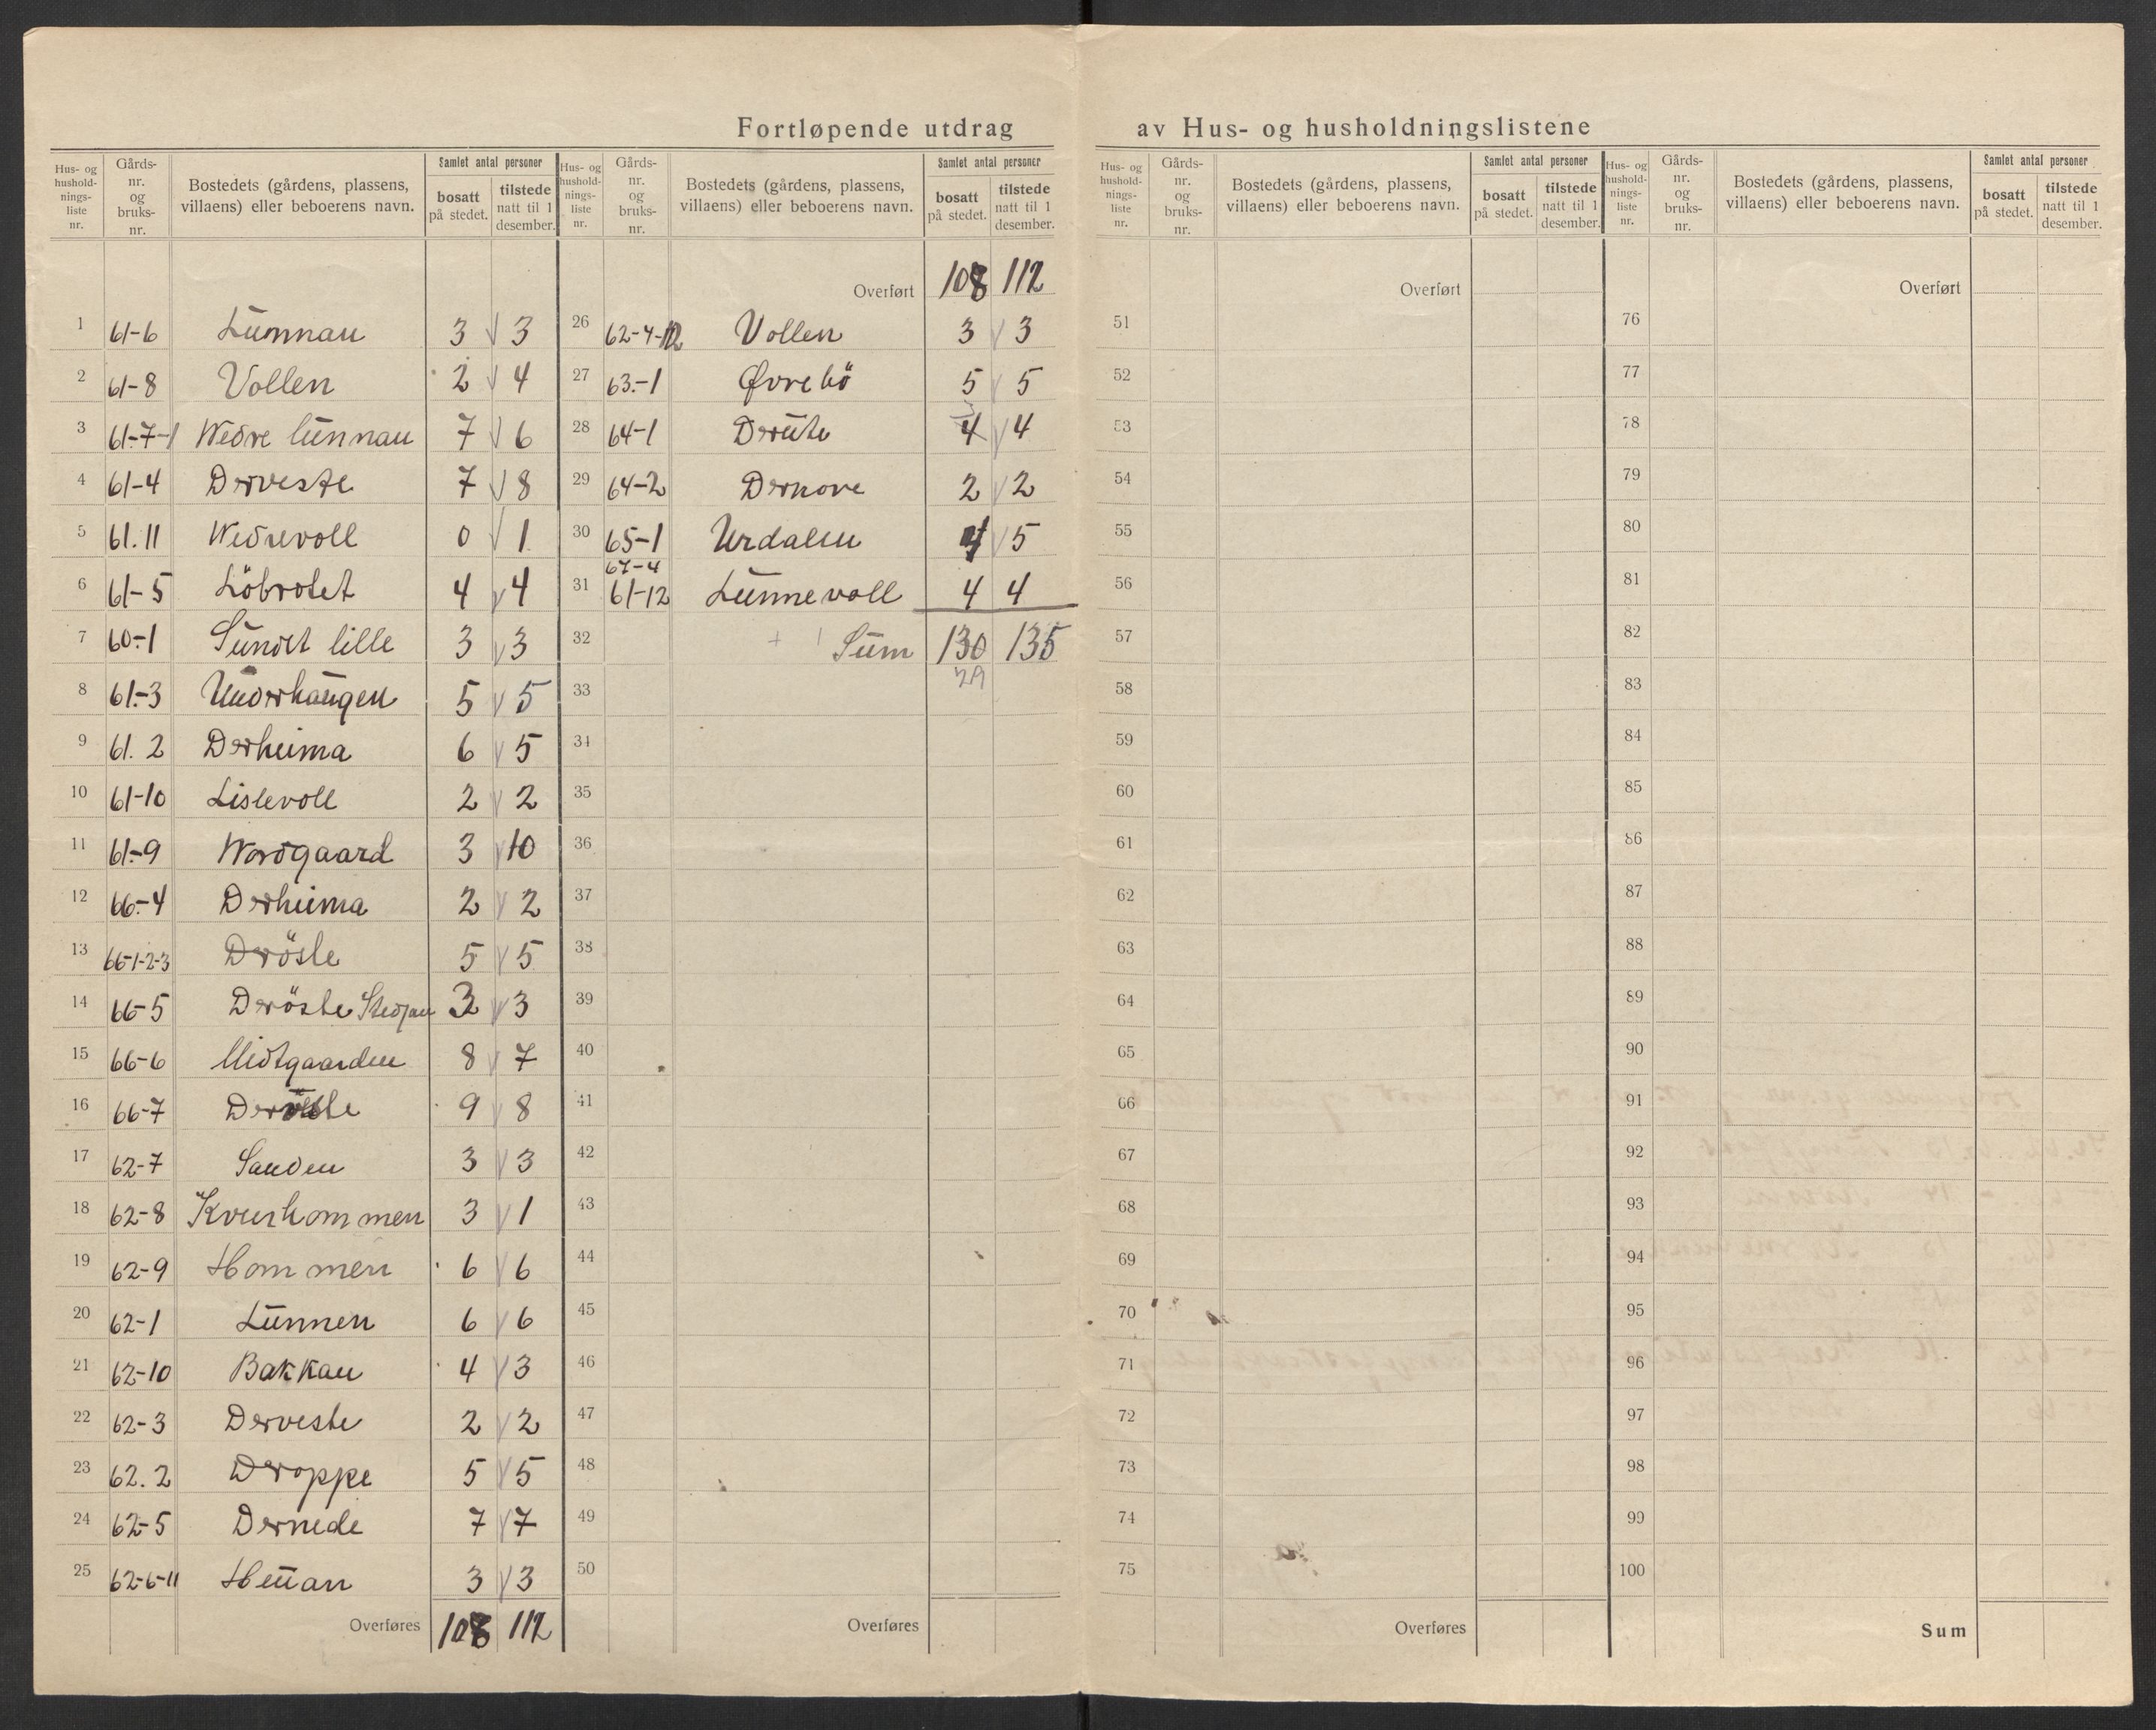 Fortløpende utdrag av Hus- og husholdningslistene
Hus- og hushold-nings-liste nr. Gårds-nr. og bruks-nr. Bostedets (gårdens, plassens, villaens) eller beboerens navn. Samlet antal personer bosatt på stedet. tilstede natt til 1 desember.
1 61-6 Lunnan 3 3
2 61-8 Vollen 2 4
3 61-7-1 Nedre lunnau 7 6
4 61-4 Derveste 7 8
5 61.11 Nedrevoll 0 1
6 61-5 Löbrotet 4 4
7 60-1 Sundet lille 3 3
8 61-3 Underhaugen 5 5
9 61.2 Derheima 6 5
10 61-10 Lislevoll 2 2
11 61-9 Nordgaard 3 10
12 66-4 Derheima 2 2
13 66-1-2-3 Dröste 5 5
14 66-5 Deröste 3 3
15 66-6 Midtgaarden 8 7
16 66-7 9 8
17 62-7 Sanden 3 3
18 62-8 Kvernhommen 3 1
19 62-9 Hommen 6 6
20 62-1 Lunnen 6 6
21 62-10 Bakkau 4 3
22 62-3 Derveste 2 2
23 62.2 Deroppe 5 5
24 62-5 Dernede 7 7
25 62-6-11 3 3
Overføres 108 112
Hus- og hushold-nings-liste nr. Gårds-nr. og bruks-nr. Bostedets (gårdens, plassens, villaens) eller beboerens navn. Samlet antal personer bosatt på stedet. tilstede natt til 1 desember.
Overført 108 112
26 62-4-12 Vollen 3 3
27 63-1 Øvrebö 5 5
28 64-1 Derute 4 4
29 64-2 Dernove 2 2
30 65-1 Urdalen 4 5
67-4
31 61-12 Lunnevoll 4 4
32 Sum 130 135
29
33
34
35
36
37
38
39
40
41
42
43
44
45
46
47
48
49
50
Overføres
Hus- og hushold-nings-liste nr. Gårds-nr. og bruks-nr. Bostedets (gårdens, plassens, villaens) eller beboerens navn. Samlet antal personer bosatt på stedet. tilstede natt til 1 desember.
Overført
51
52
53
54
55
56
57
58
59
60
61
62
63
64
65
66
67
68
69
70
71
72
73
74
75
Overføres
Hus- og hushold-nings-liste nr. Gårds-nr. og bruks-nr. Bostedets (gårdens, plassens, villaens) eller beboerens navn. Samlet antal personer bosatt på stedet. tilstede natt til 1 desember.
Overført
76
77
78
79
80
81
82
83
84
85
86
87
88
89
90
91
92
93
94
95
96
97
98
99
100
Sum